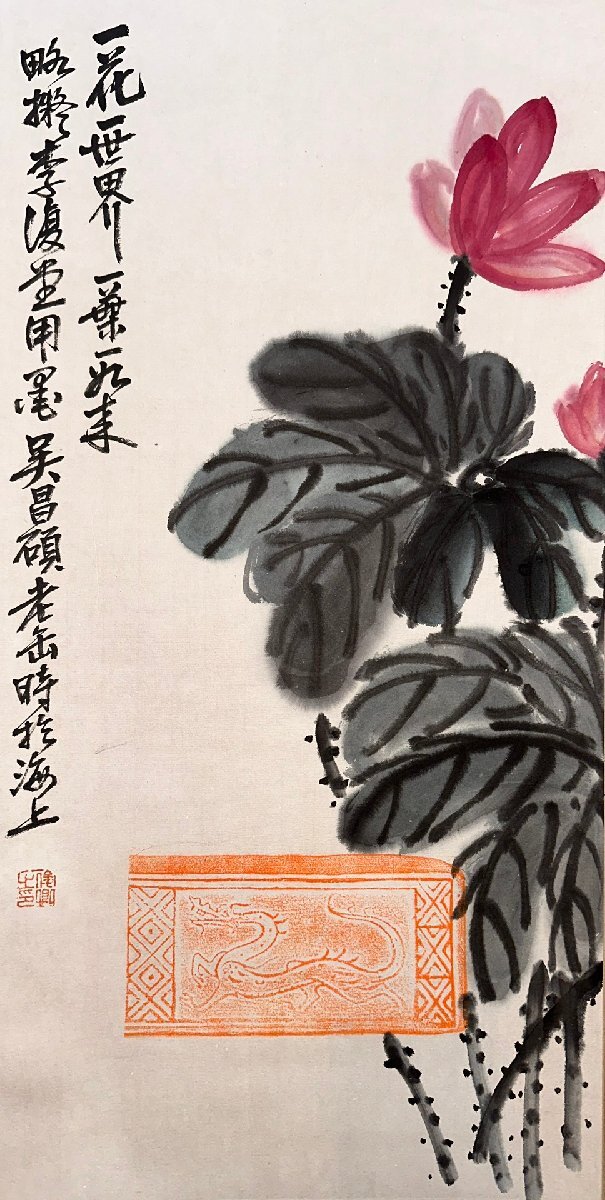 一花一世界一葉一如来
略擬李復堂用墨吳昌碩老缶時於海上
俊卿之印